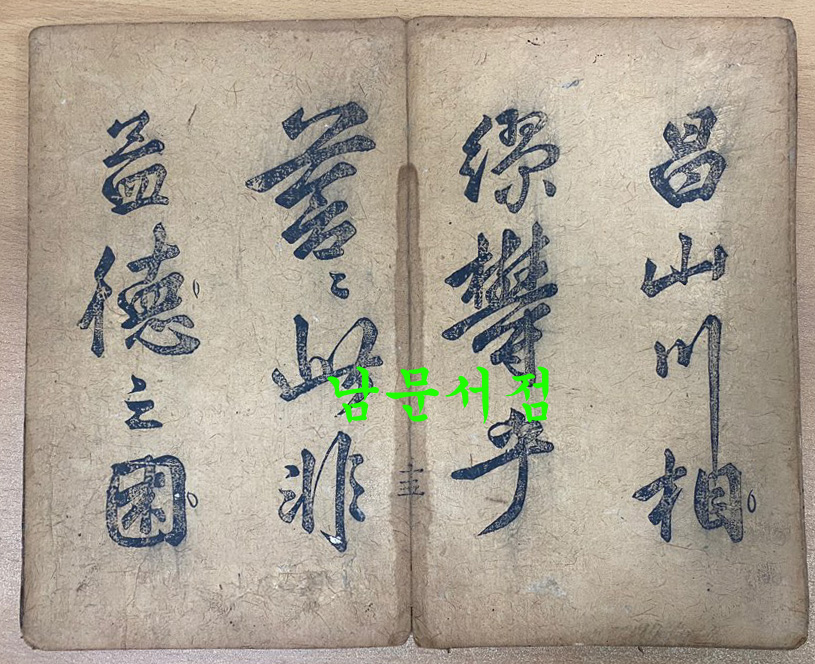 昌山川相
繆鬱乎
蒼〻此非
孟德之困
남문서점